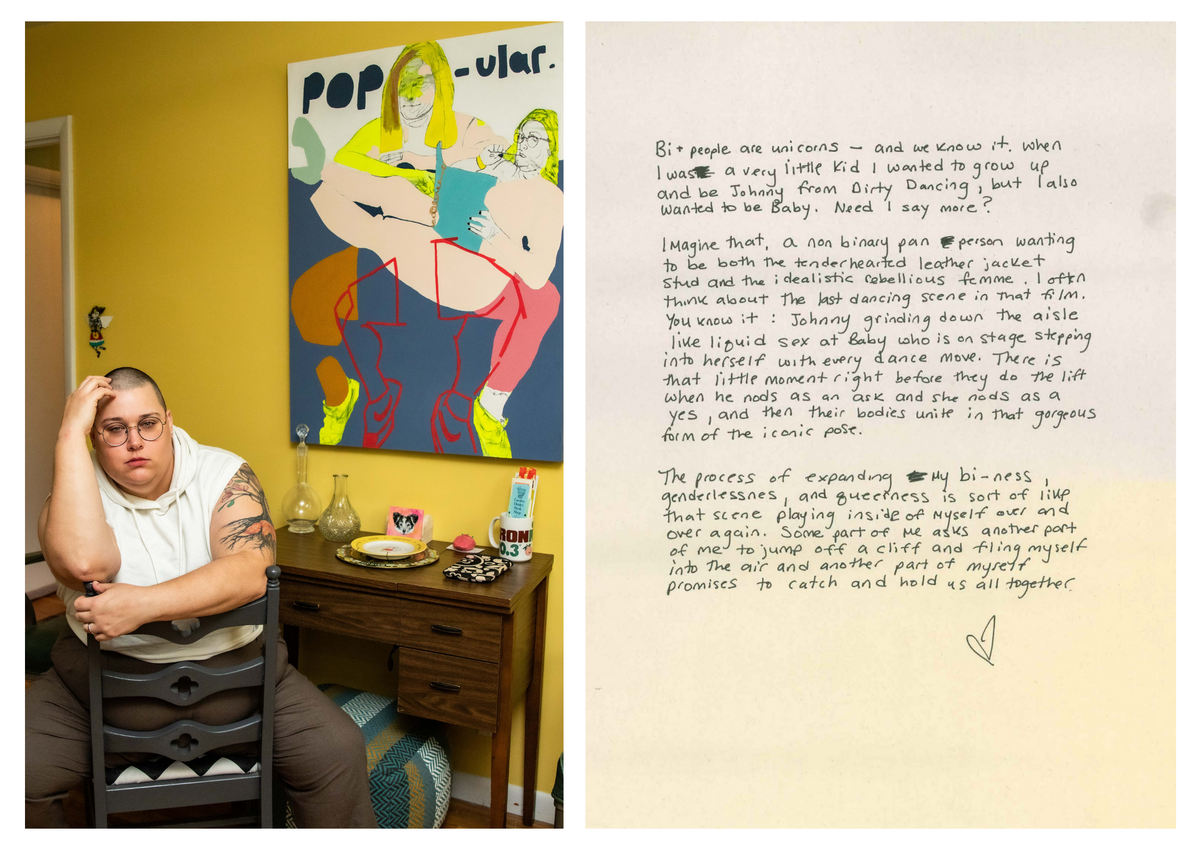 POP -ular.
RONI
0.3
Bi+ people are unicorns — and we know it. When
I was a very little kid I wanted to grow up
and be Johnny from Dirty Dancing, but I also
wanted to be Baby. Need I say more?
Imagine that, a non binary pan person wanting
to be both the tenderhearted leather jacket
stud and the idealistic rebellious femme. I oftn
think about the last dancing scene in that film.
You know it : Johnny grinding down the aisle
like liquid sex at Baby who is on stage stepping
into herself with every dance move. There is
that little moment right before they do the lift
when he nods as an ask and she nods as a
yes, and then their bodies unite in that gorgeous
form of the iconic pose.
The process of expanding my bi-ness,
genderlessnes, and queerness is sort of like
that scene playing inside of myself over and
over again. Some part of me asks another part
of me to jump off a cliff and fling myself
into the air and another part of myself
promises to catch and hold us all together.